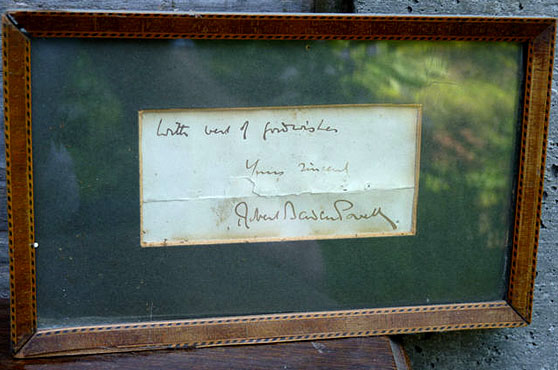 With best of good wishes
Yours sincerely
Robert Baden Powell